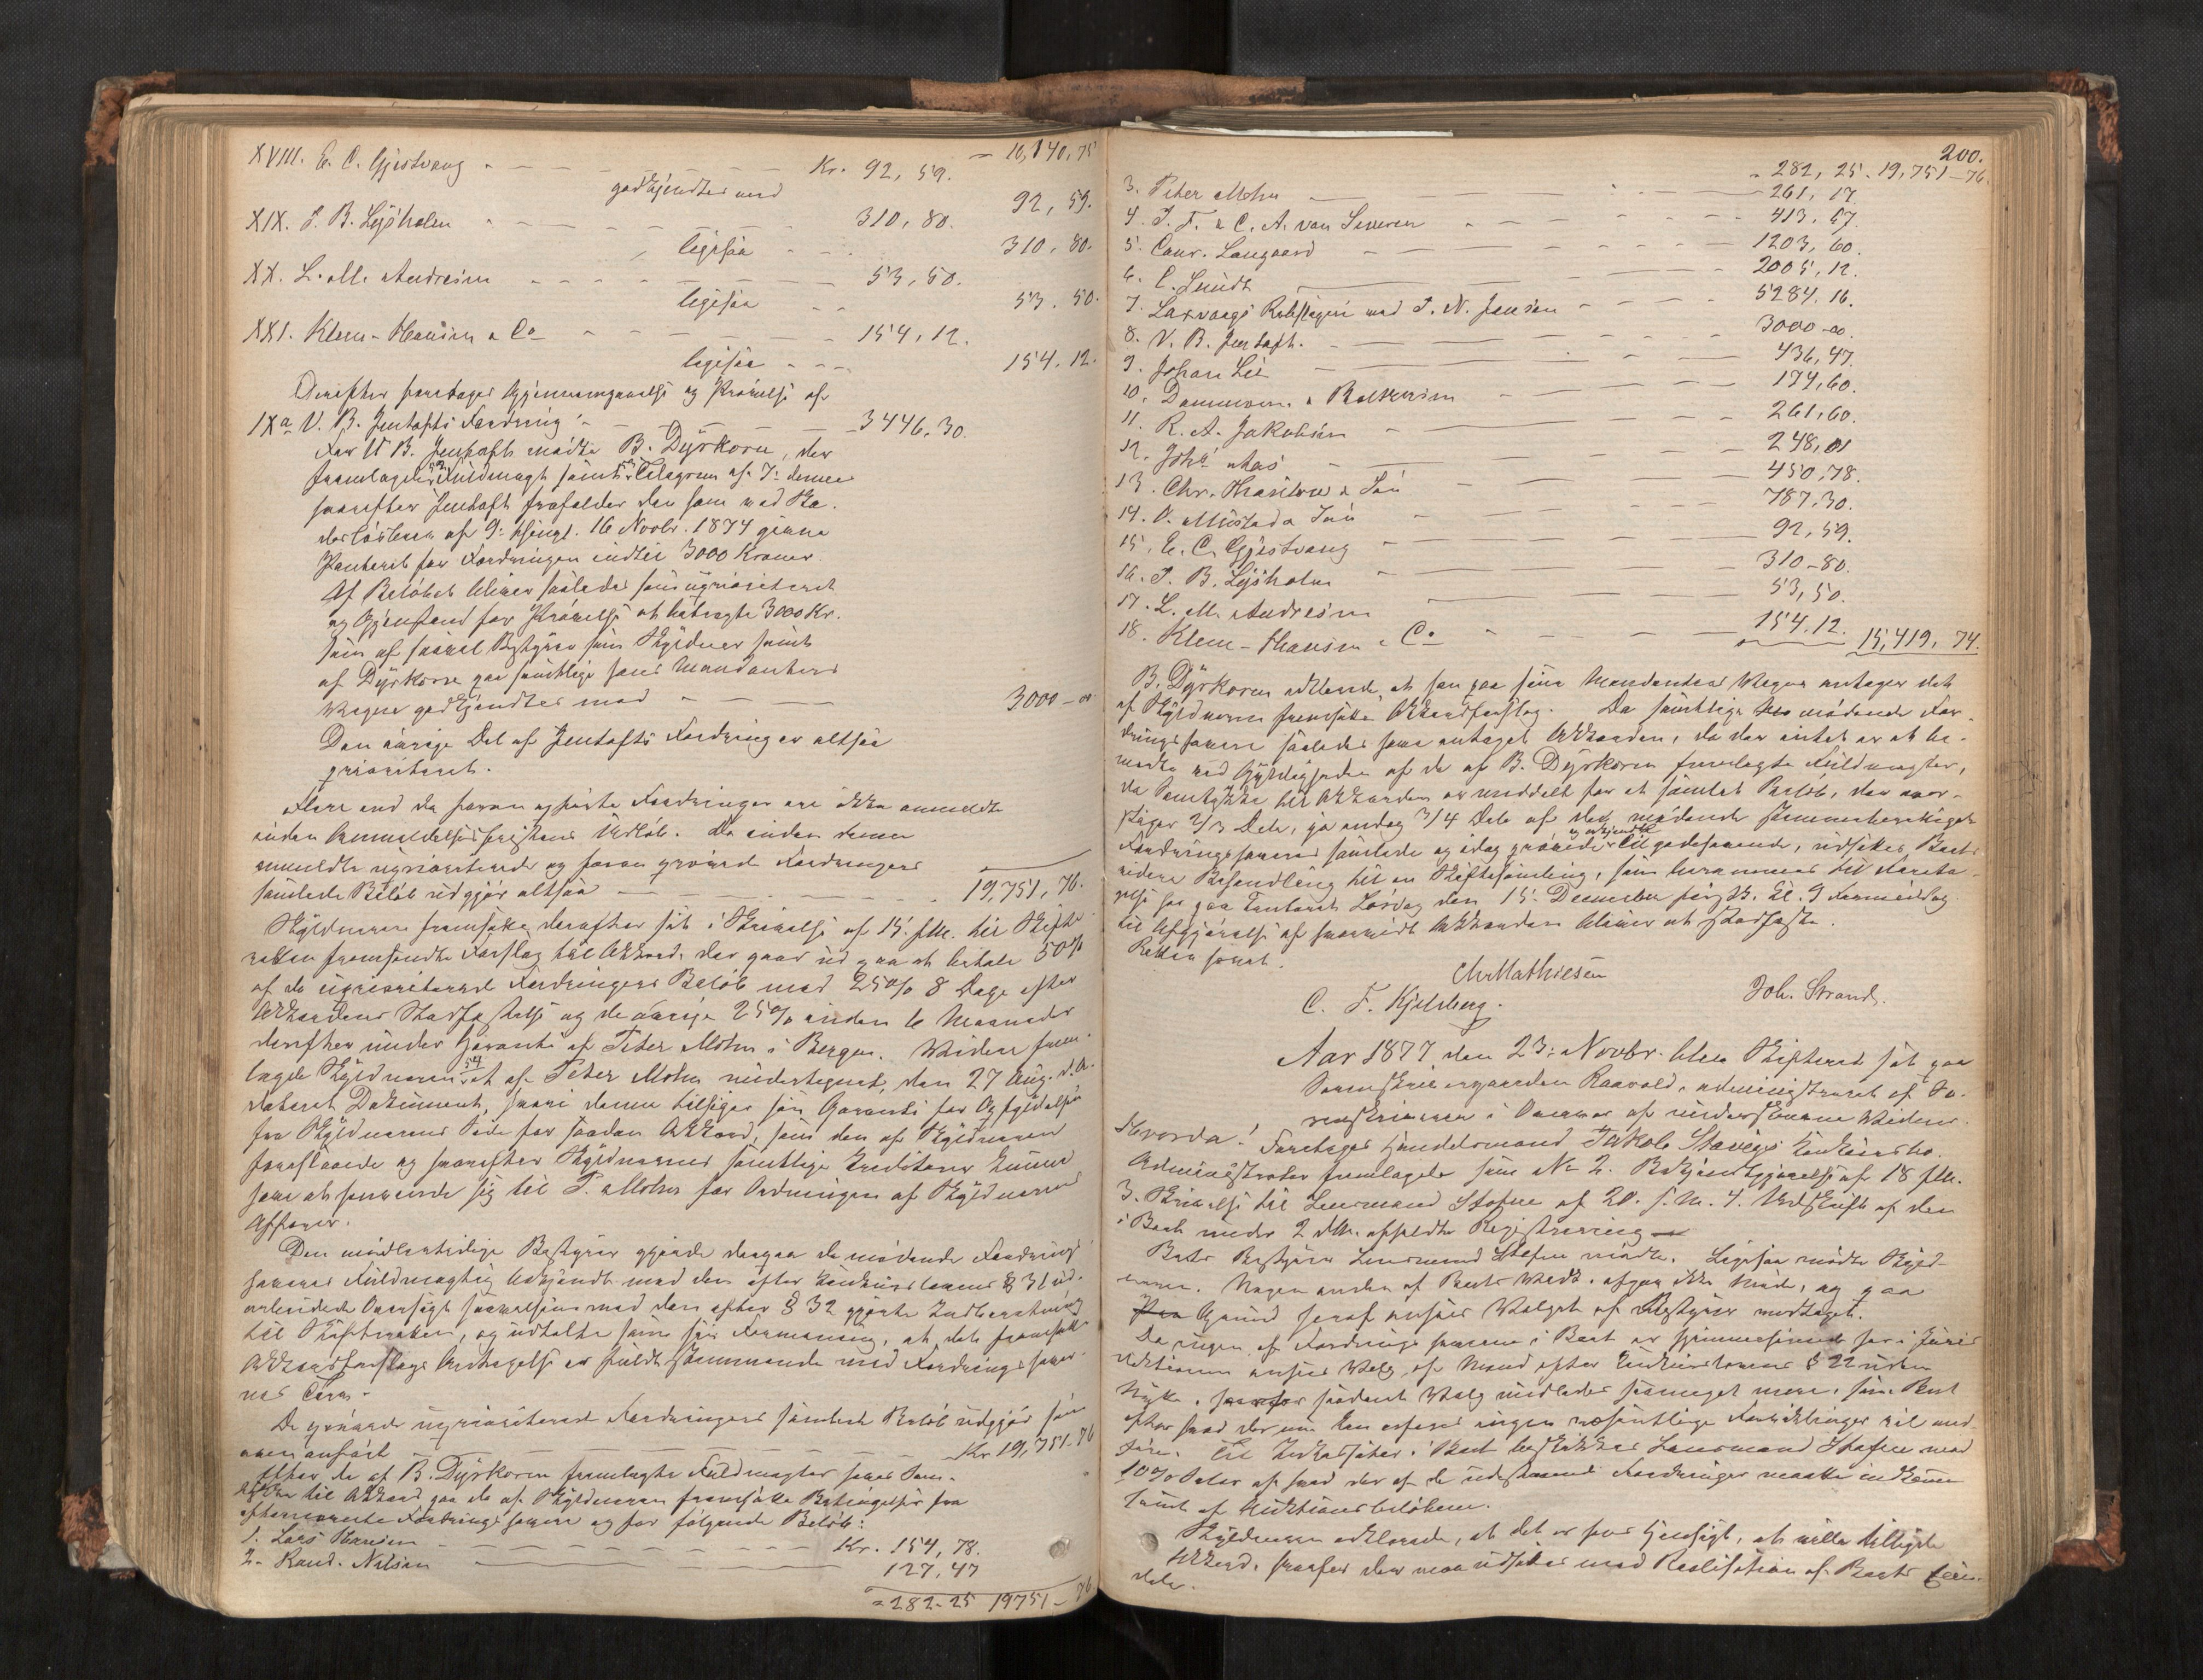 – 16,140,75
XVIII. E. C. Gjestvang – – – Kr. 92, 59.
godkjendtes med 92, 59.
XIX. J. B. Lysholm – – – 310, 80.
ligesaa – – 310, 80.
XX. L. M. Andresen – – – 53, 50.
ligesaa – – 53. 50.
XXI. Klem-Hansen & Co – – – 154, 12.
ligesaa – – – 154. 12.
Derefter foretages Gjennemgaaelse og Prøvelse af
IXa V. B. Jentofts Fordring – – – 3446,30.
For V B. Jentoft mødte B. Dyrkorn, der
fremlagde Fuldmagt samt Telegram af 7de dennes
hvorefter Jentoft frafalder den ham ved
af 9de thingl. 16 Novbr. 1874 givne
Panteret for Fordringen indtil 3000 Kroner.
Af Beløbet bliver saaledes som uprioriteret
og Gjenstand for Prøvelse at betragte 3000 Kr.
som af saavel Bestyrer som Skyldner samt
af Dyrkorn paa samtlige hans Mandanters
Vegne godkjendtes med – – – 3000–00
Den øvrige Del af Jentofts Fordring er altsaa
prioriteret.
Flere end de foran opførte Fordringer ere ikke anmeldte
inden Anmeldelsesfristens Udløb. De inden denne
anmeldte uprioriterede og foran prøvede Fordringers
samlede Beløb udgjør altsaa – – – 19,751, 76.
Skyldneren fremsatte derefter sit i Skrivelse af 15. f.M. til Skifte-
retten fremsendte Forslag til Akkord, der gaar ud paa at betale 50%
af de uprioriterede Fordringers Beløb med 25% 8 Dage efter
Akkordens Stadfæstelse og de øvrige 25% inden 6 Maaneder
derefter under Garanti af Peter Mohn i Bergen. Videre frem-
lagde Skyldneren et af Peter Mohn undertegnet, den 27 Aug. d.A.
dateret Dokument, hvori denne tilsiger sin Garanti for Opfyldelse
fra Skyldnerens Side for saadan Akkord, som den af Skyldneren
foreslaaede og hvorefter Skyldnerens samtlige Kreditorer kunne
have at henvende sig til P. Mohn for Ordningen af Skyldnerens
Affairer.
Den midlertidige Bestyrer gjorde derpaa de mødende Fordrings-
haveres Fuldmægtig bekjendt med den efter Konkurslovens § 31 ud-
arbeidede Oversigt saavelsom med den efter § 32 gjorte Indberetning
til Skifteretten, og udtalte som sin Formening, at det fremsatte
Akkordforslags Antagelse er fuldt stemmende med Fordringshaver-
nes Tarv.
De prøvede uprioriterede Fordringers samlede Beløb udgjør som
ovenanført – – – Kr. 19,751–76
Efter de af B. Dyrkorn fremlagte Fuldmagter haves Sam-
tykke til Akkord paa de af Skyldneren fremsatte Betingelser fra
efternævnte Fordringshavere og for følgende Beløb:
1. Lars Hansen – – – Kr. 154, 78.
2. Rand. Nilsen – – – 127, 47
= 282–25 19751–76
200.
– 282, 25. 19,751–76.
3. Peter Mohn – – – 261, 17.
4. J. F. & C. A. van Severen – – – 413, 67.
5. Conr. Langaard – – – 1203, 60.
6. C. Sundt – – – 2005, 12.
7. Laxvaags Rebslageri ved J. N. Jensen – – – 5284, 16.
8. V. B. Jentoft. – – – 3000–00.
9. Johan Lie – – – 436, 47.
10. Dannevig & – – – 174, 60.
11. R. A. Jakobsen – – – 261, 60.
12. Johs Aas – – – 248, 01
13. Chr. & Søn – – – 450, 78.
14. O. Mustad & Søn – – – 787. 30.
15. E. C. Gjestvang – – – 92, 59.
16. J. B. Lysholm – – – 310–80.
17. L. M. Andresen – – – 53, 50.
18. Klem-Hansen & Co – – – 154. 12. 15,419, 74.
B. Dyrkorn erklærede, at han paa sine Mandanters Vegne antager det
af Skyldneren fremsatte Akkordforslag. Da samtlige mødende For-
dringshavere saaledes have antaget Akkorden, da der intet er at be-
mærke ved Gyldigheden af de af B. Dyrkorn fremlagte Fuldmagter,
da Samtykke til Akkorden er meddelt for et samlet Beløb, der over-
stiger 2/3 Dele, ja endog 3/4 Dele af de mødende stemmeberettigede
Fordringshaveres samlede og idag prøvede og erkjendte Tilgodehavende, udsættes Boets
videre Behandling til en Skiftesamling, som berammes til Foreta-
gelse her paa Kontoret Lørdag den 15. December førstk. Kl. 9 Formiddag
til Afgjørelse af hvorvidt Akkorden bliver at stadfæste.
Retten hævet.
Chr Mathiesen
C. F. Kjelsberg. Joh. Strand.
Aar 1877 den 23de Novbr. blev Skifteret sat paa
Sorenskrivergaarden Raavold, administreret af So-
renskriveren i Overvær af underskrevne Vidner.
Hvorda!
Foretages Handelsmand Jakob Stavigs Konkursbo.
Administrator fremlagde som No 2. Bekjendtgjørelse af 18 f.M.
3. Skrivelse til Lensmand Hofne af 20. s.M. 4. Udskrift af den
i Boet under 2 dM. afholdte Registrering
Boets Bestyrer Lensmand Hofne mødte. Ligesaa mødte Skyld-
neren. Nogen anden af Boets Vedk. afgav ikke Møde, og paa
Grund heraf ansees Valget af Bestyrer modtaget.
Da ingen af Fordringshaverne i Boet er hjemmehørende her i Juris-
diktionen ansees Valg af Mænd efter Konkurslovens § 22 uden
Nytte, hvorfor saadant Valg undlades saameget mere, som Boet
efter hvad der nu kan erfares ingen væsentlige Forviklinger vil med-
føre. Til Inkassator i Boet beskikkes Lensmand Hofne mod
10% Salær af hvad der af de udestaaende Fordringer maatte indkomme
samt af Auktionsbeløbene.
Skyldneren erklærede, at det er hans Hensigt, at ville tilbyde
Akkord, hvorfor der maa udsættes med Realisation af Boets Eien-
dele.